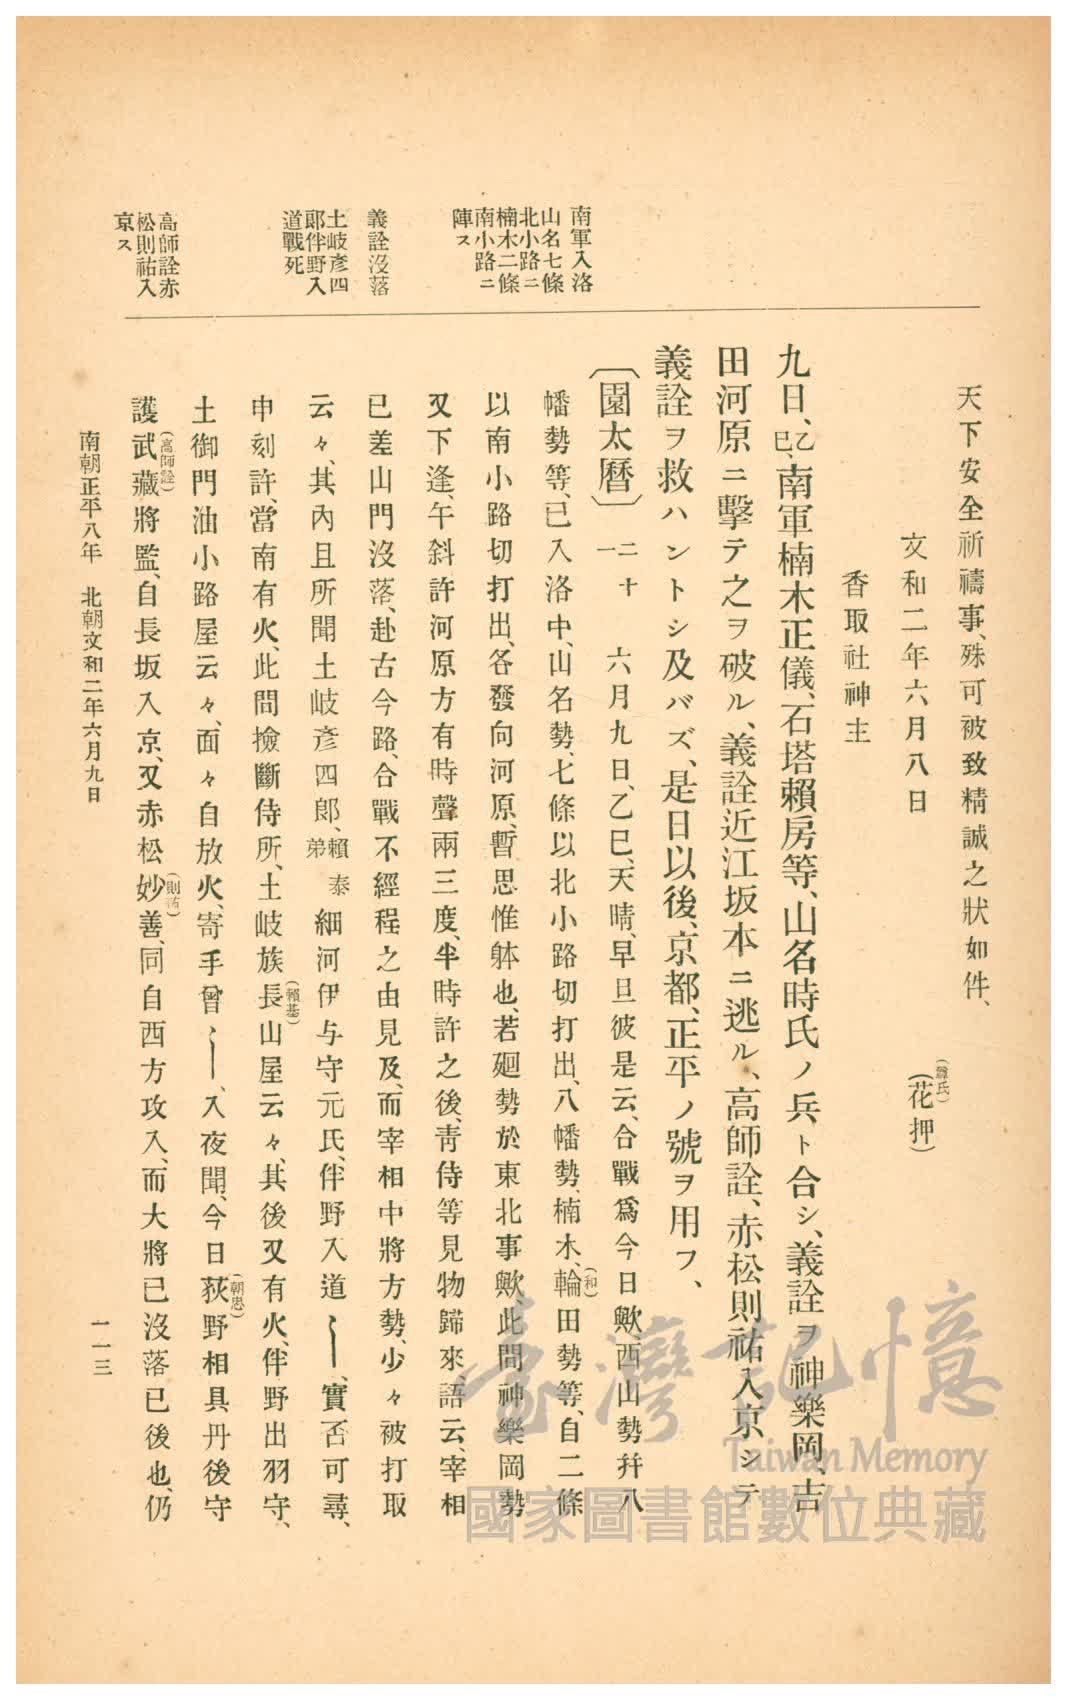 南軍入洛
山名七條
北小路ニ
楠木二條
南小路ニ
陣ス
義詮沒落
土岐彥四
郎伴野入
道戰死
高師詮赤
松則祐入
京ス
天下安全祈禱事、殊可被致精誠之狀如件、
文和二年六月八日
(尊氏)
(花押)
香取社神主
九日、乙巳、南軍楠木正儀、石塔賴房等、山名時氏ノ兵ト合シ、義詮ヲ神樂岡、吉
田河原ニ擊テ之ヲ破ル、義詮近江坂本ニ逃ル、高師詮、赤松則祐入京シテ
義詮ヲ救ハントシ及バズ、是日以後、京都、正平ノ號ヲ用フ、
〔園太曆〕二十一 六月九日、乙巳、天晴、早旦彼是云、合戰爲今日歟西山勢幷八
幡勢等、已入洛中、山名勢、七條以北小路切打出、八幡勢、楠木、輪(和)田勢等、自二條
以南小路切打出、各發向河原、暫思惟躰也、若廻勢於東北事歟、此間神樂岡勢
又下逢、午斜許河原方有時聲兩三度、半時許之後、靑侍等見物歸來、語云、宰相
已差山門沒落、赴古今路、合戰不經程之由見及、而宰相中將方勢、少々被打取
云々、其內且所聞土岐彥四郎、賴泰弟 細河伊与守元氏、伴野入道〻━、實否可尋、
申刻許、當南有火、此間撿斷侍所、土岐族長(賴基)山屋云々、其後又有火、伴野出羽守、
土御門油小路屋云々、面々自放火、寄手曾〻━、入夜聞、今日荻(朝忠)野相具丹後守
護武藏(高師詮)將監、自長坂入京、又赤松妙(則祐)善、同自西方攻入、而大將已沒落已後也、仍
南朝正平八年 北朝文和二年六月九日
一一三
臺灣記憶
Taiwan Memory
國家圖書館數位典藏